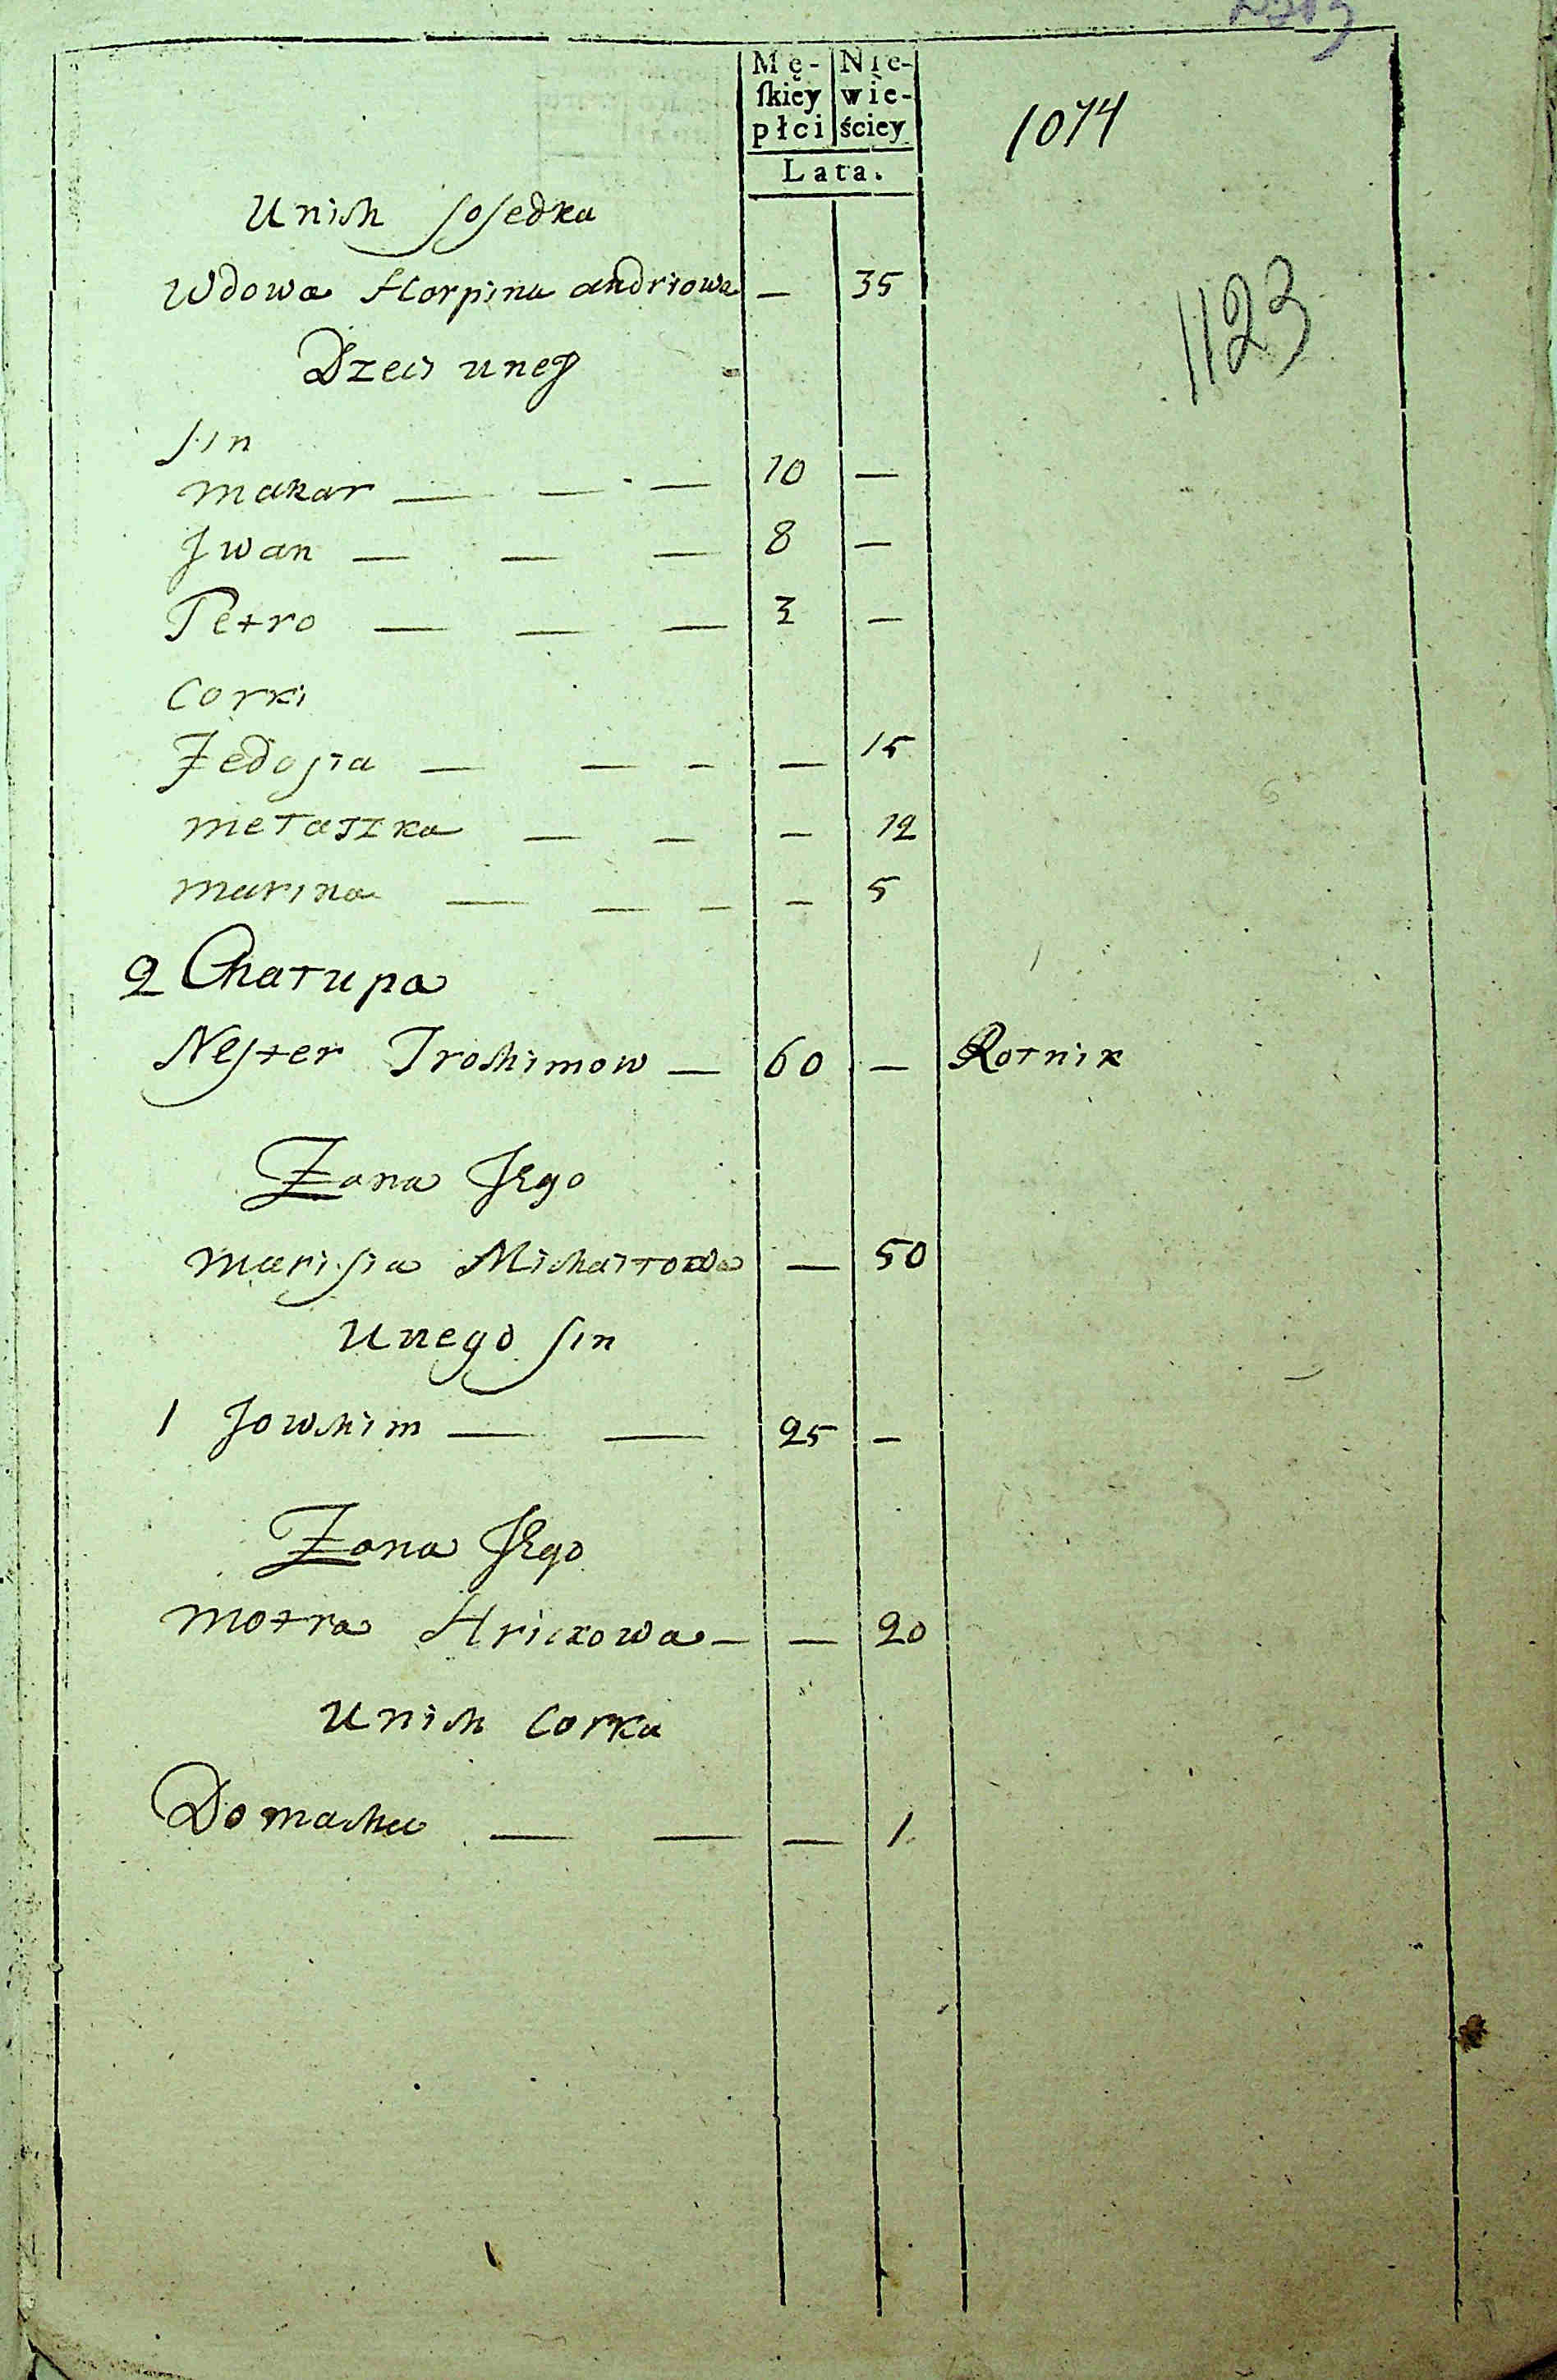 Mę- Nie-
ſkiey wie-
płci ściey
Lata.
1074
1123
Unich soſedka
Wdowa Horpina andriowa — 35
Dzeci uney
sin
makar — — — 10 —
Jwan — — — 8 —
Petro — — — 3 —
Corki
Fedosia — — - — 15
metaszka — — — 12
marina — — - — 5
2 Chałupa
Nester Trochimow — 60 — Rolnik
Żona Jego
marisia Michaiłowa — 50
Unego sin
1 Jowchim — — 25 —
Żona Jego
motra Hrickowa — — 20
Unich Corka
Domacha — — — 1